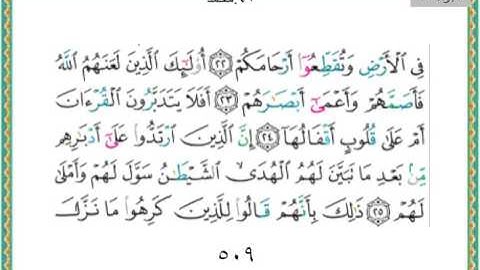 فِي الْأَرْضِ وَتُقَطِّعُوا أَرْحَامَكُمْ ٢٢ أُولَٰئِكَ الَّذِينَ لَعَنَهُمُ اللَّهُ
فَأَصَمَّهُمْ وَأَعْمَىٰ أَبْصَارَهُمْ ٢٣ أَفَلَا يَتَدَبَّرُونَ الْقُرْءَانَ
أَمْ عَلَىٰ قُلُوبٍ أَقْفَالُهَا ٢٤ إِنَّ الَّذِينَ ارْتَدُّوا عَلَىٰ أَدْبَارِهِم
مِّن بَعْدِ مَا تَبَيَّنَ لَهُمُ الْهُدَى الشَّيْطَٰنُ سَوَّلَ لَهُمْ وَأَمْلَىٰ
لَهُمْ ٢٥ ذَٰلِكَ بِأَنَّهُمْ قَالُوا لِلَّذِينَ كَرِهُوا مَا نَزَّلَ
٥٠٩